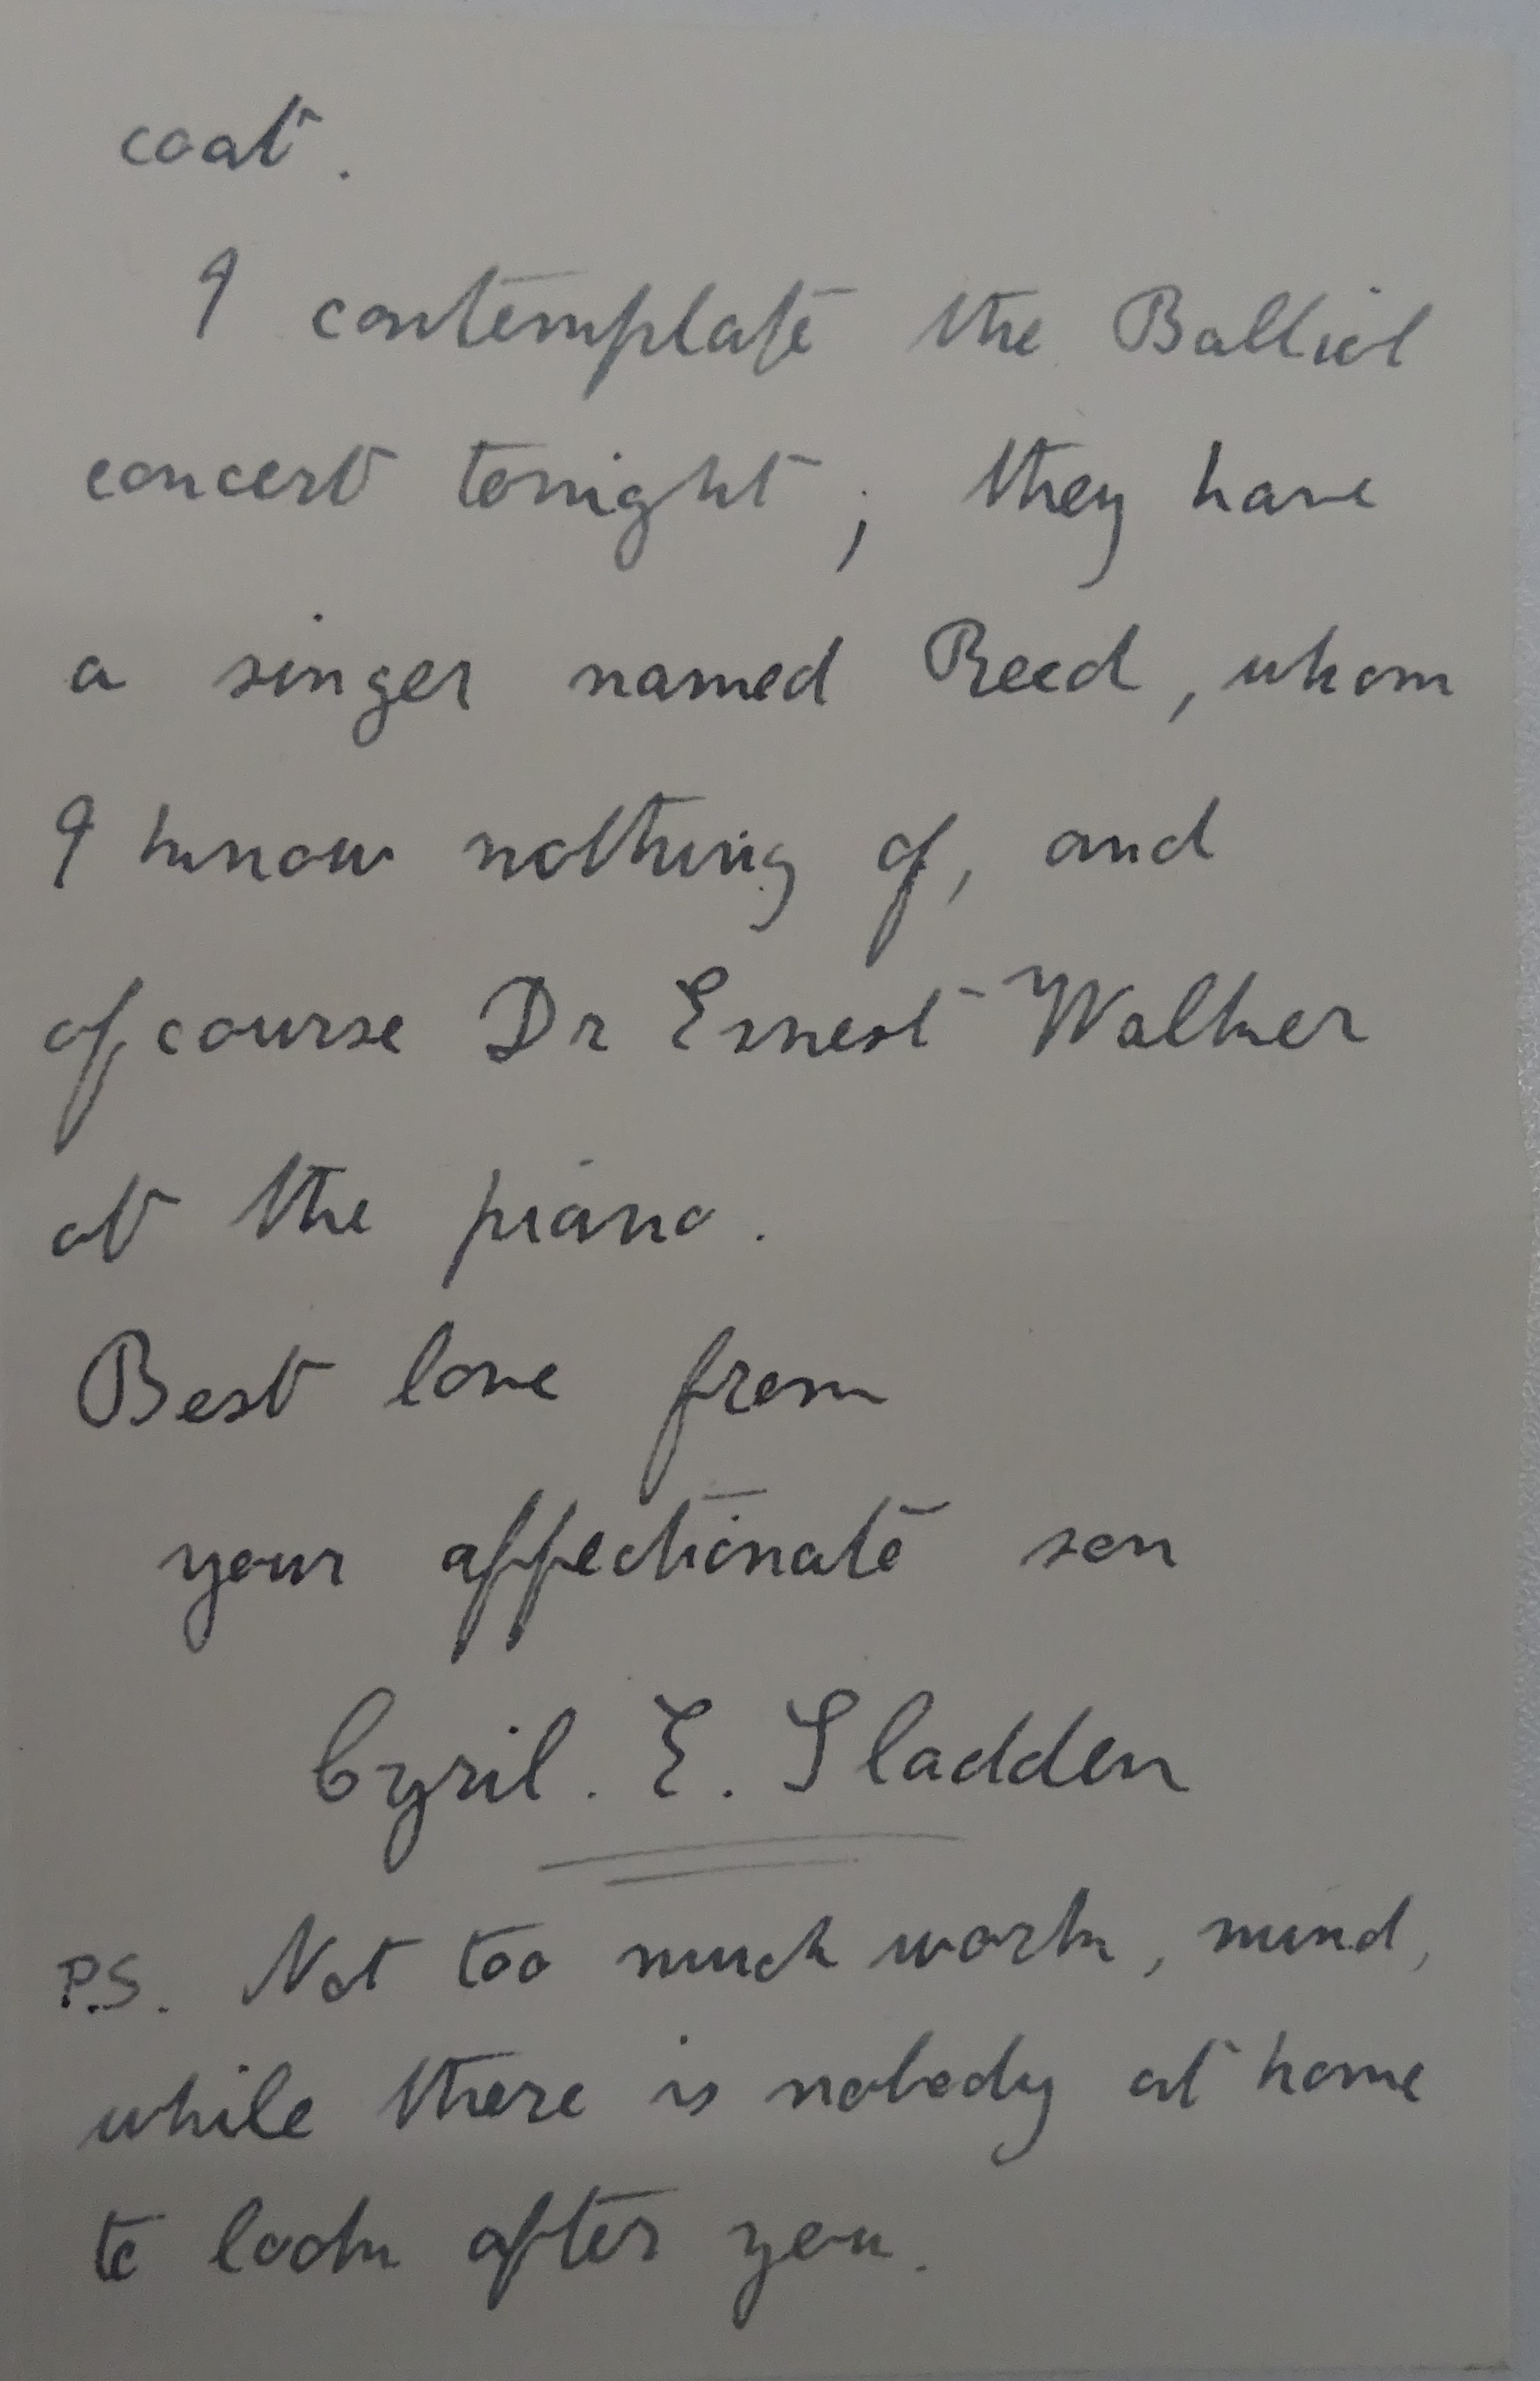 coat.
I contemplate the Balliol
concert tonight; they have
a singer named Reed, whom
I know nothing of, and
of course Dr Ernest Walker
at the piano.
Best love from
your affectionate son
Cyril. E. Sladden
P.S. Not too much work, mind,
while there is nobody at home
to look after you.